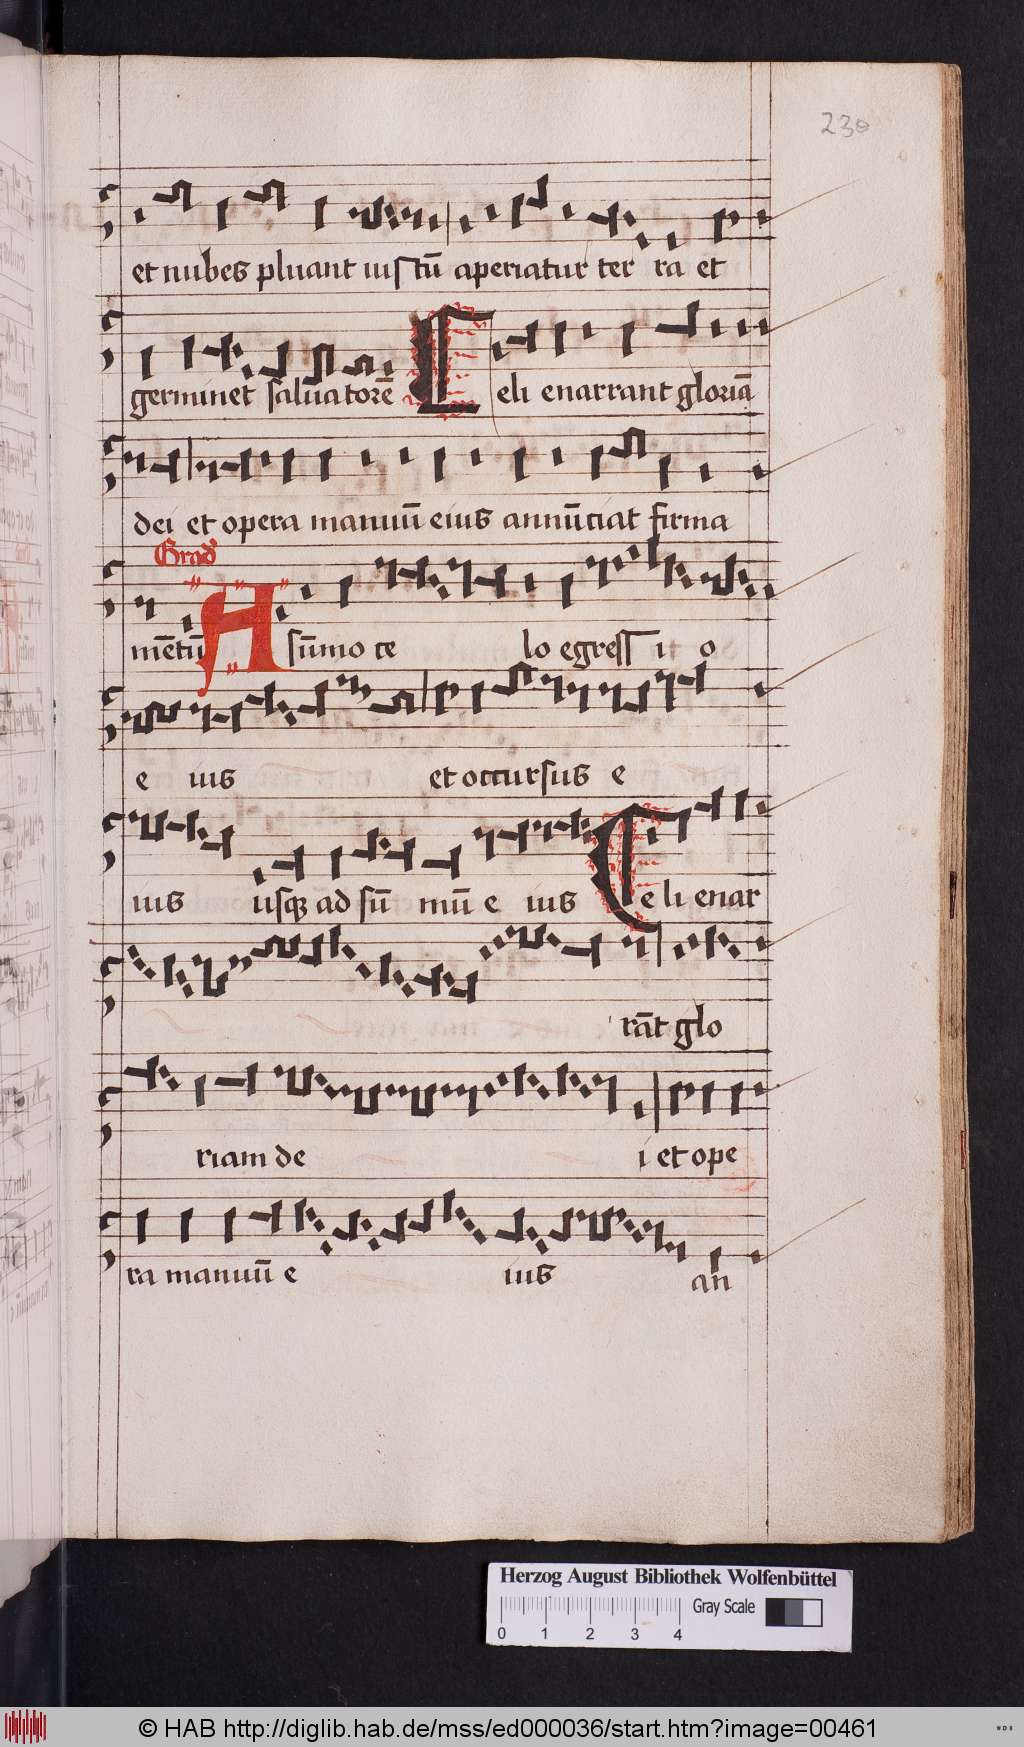 230
et nubes pluant iustū aperiatur ter ra et
germinet saluatorē Celi enarrant gloriā
dei et opera manuū eius annūciat firma
Grad
mētū A sūmo ce lo egress i o
e ius et occursus e
ius usqȝ ad sū mū e ius Celi enar
rāt glo
riam de i et ope
ra manuū e ius an
Herzog August Bibliothek Wolfenbüttel
Gray Scale
0 1 2 3 4
© HAB http://diglib.hab.de/mss/ed000036/start.htm?image=00461